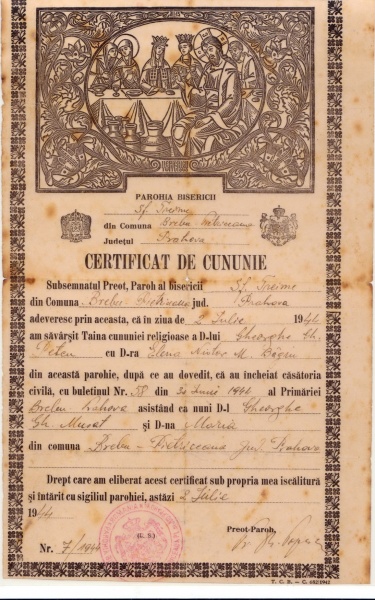 PAROHIA BISERICII
Sf. Treime
din Comuna Breba
Județul Prahova
CERTIFICAT DE CUNUNIE
Subsemnatul Preot, Paroh al bisericii Sf. Treime
din Comuna Breba jud. Prahova
adeveresc prin aceasta, că în ziua de 2 Iulie 1944
am săvârșit Taina cununiei religioase a D-lui Gheorghe Gh.
cu D-ra Elena M.
din această parohie, după ce au dovedit, că au încheiat căsătoria
civilă, cu buletinul Nr. din Iunie 1944 al Primăriei
asistând ca nuni D-l Gheorghe
Gh. Mușat și D-na Maria
din comuna Prahova
Drept care am eliberat acest certificat sub propria mea iscălitură
și întărit cu sigiliul parohiei, astăzi 2 Iulie
1944
Preot-Paroh,
(L. S.)
Nr. 7/1944
T. C. B. – C. 682/1942